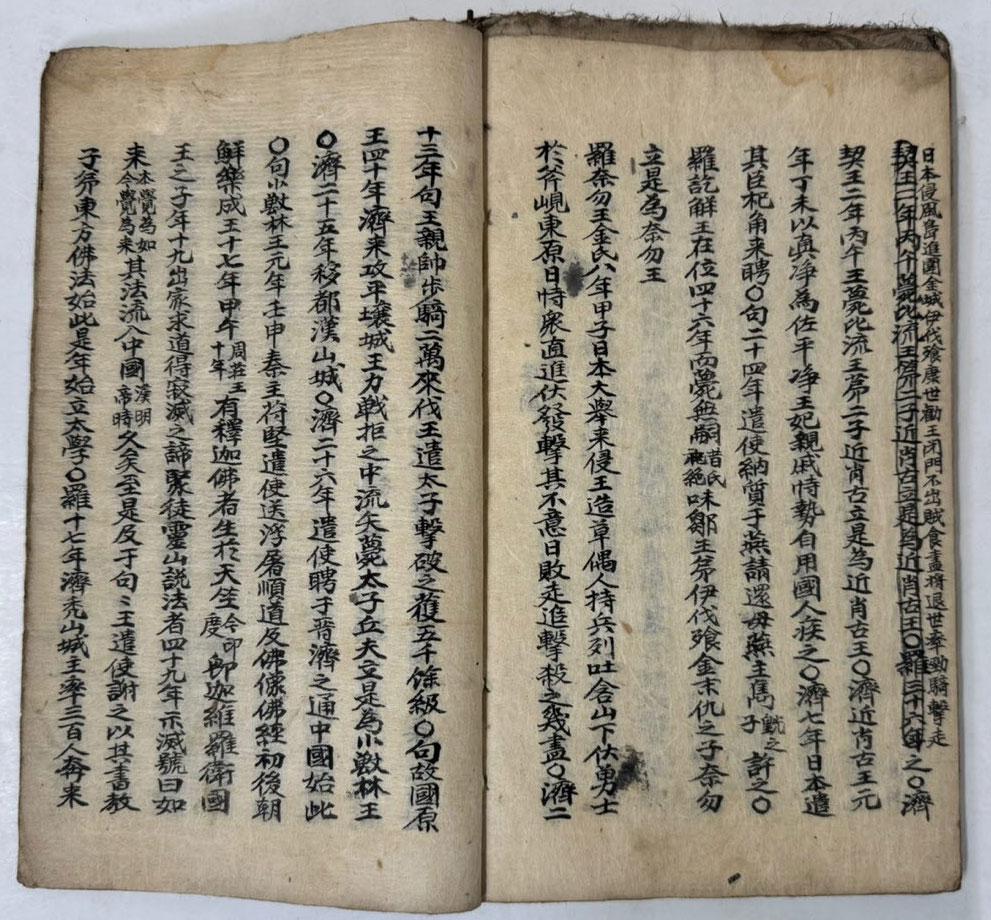 日本侵風島進圍金城伊伐飱康世勸王閉門不出賊食盡將退世率勁騎擊走
契王二年丙午薨比流王第二子近肖古立是為近肖古王〇羅三十六年之〇濟
契王二年丙午王薨比流王第二子近肖古立是為近肖古王〇濟近肖古王元
年丁未以真淨為佐平淨王妃親戚恃勢自用國人疾之〇濟七年日本遣
其臣杞角来聘〇句二十四年遣使納質于燕請還母燕主雋子觀之許之〇
羅訖解王在位四十六年而薨無嗣昔氏嗣絶味鄒王苐伊伐飱金末仇之子奈勿
立是為奈勿王
羅奈勿王金氏八年甲子日本大舉来侵王造草偶人持兵列吐含山下伏勇士
於斧峴東原日恃衆直進伏發擊其不意日敗走追擊殺之幾盡〇濟二
十三年句王親帥步騎二萬來伐王遣太子擊破之獲五千餘級〇句故國原
王四十年濟来攻平壤城王力戰拒之中流矢薨太子丘夫立是為小獸林王
〇濟二十五年移都漢山城〇濟二十六年遣使聘于晉濟之通中國始此
〇句小獸林王元年壬申秦主苻堅遣使送浮屠順道及佛像佛經初後朝
鮮樂成王十七年甲午周莊王十年有釋迦佛者生於天竺今印度卽迦維羅衛國
王之子年十九出家求道得寂滅之諦聚徒靈山説法者四十九年示滅號曰如
来本覺為如今覺為来其法流入中國漢明帝時久矣至是及于句〻王遣使謝之以其書教
子苐東方佛法始此是年始立太學〇羅十七年濟禿山城主率三百人奔来